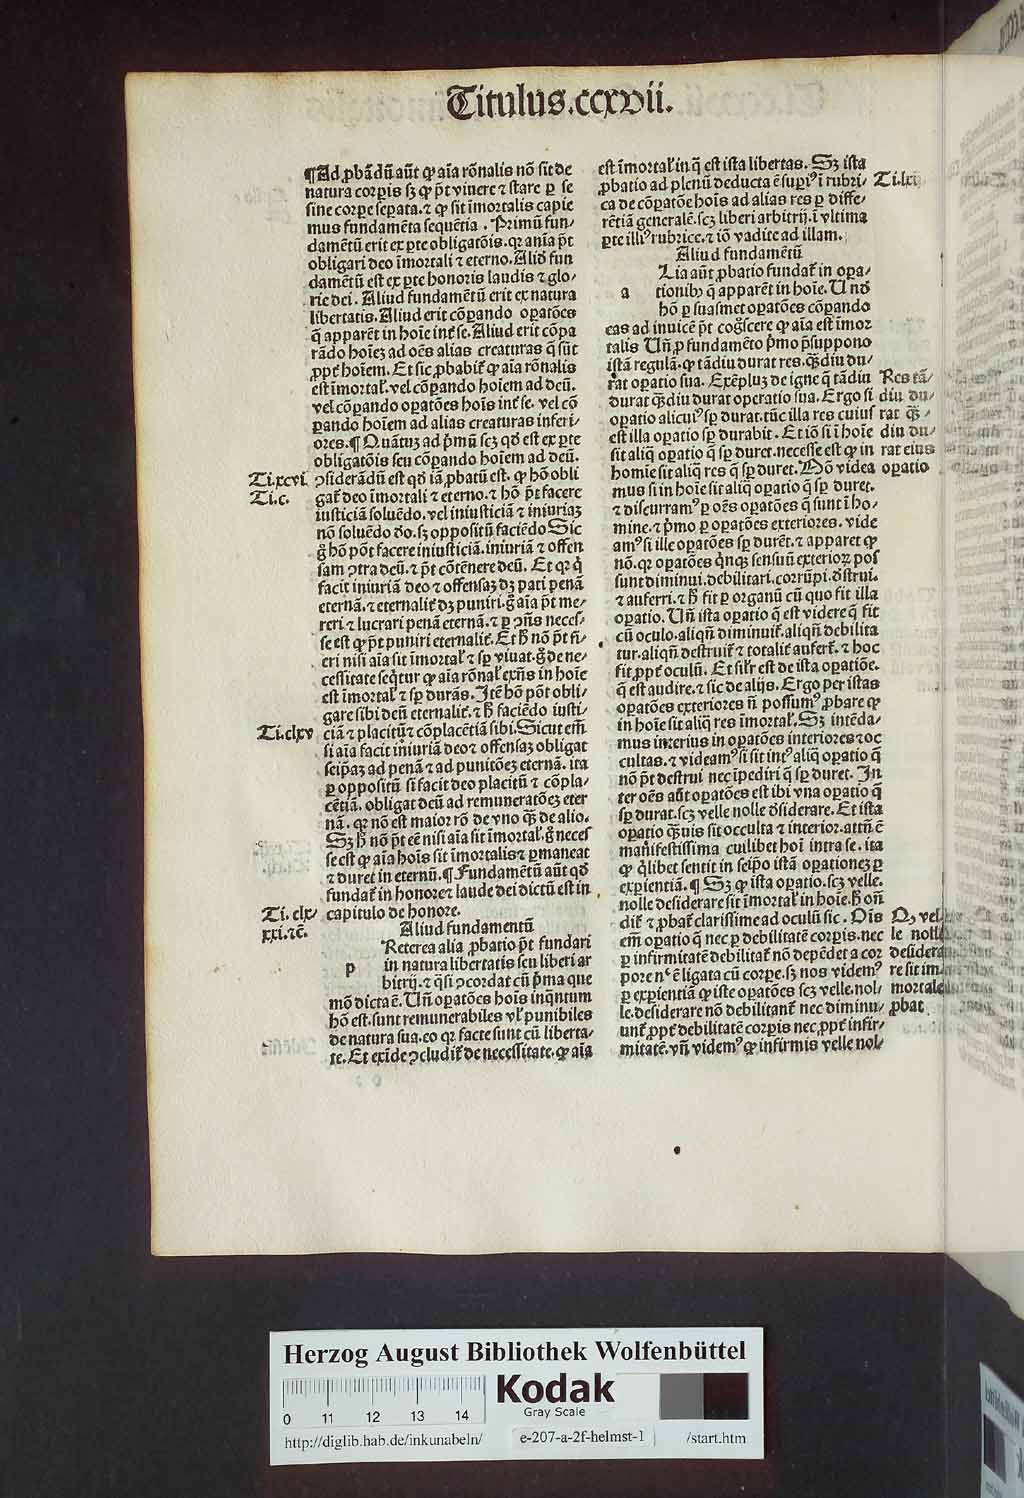 Titulus.ccxvii.
¶Ad ꝓbãdũ aũt ꝙ aĩa rõnalis nõ sit de
natura corꝑis sꝫ ꝙ p̃t viuere ⁊ stare ꝑ se
sine corꝑe seꝑata.⁊ ꝙ sit ĩmortalis capie
mus fundamẽta sequẽtia . Primũ fun⸗
damẽtũ erit ex ꝑte obligatõis.qꝛ anĩa p̃t
obligari deo ĩmortali ⁊ eterno. Aliđ fun
damẽtũ est ex ꝑte honoris laudis ⁊ glo⸗
rie dei . Aliud fundamẽtũ erit ex natura
libertatis. Aliud erit cõꝑando oꝑatões
q̃ apparẽt in hoĩe int̃ se. Aliud erit cõpa
rãdo hoĩeꝫ ad oẽs alias creaturas q̃ sũt
ꝓpt̃ hoĩem. Et sic ꝓbabit̃ ꝙ aĩa rõnalis
est ĩmortal̃. vel cõꝑando hoĩem ad deũ.
vel cõꝑando oꝑatões hoĩs int̃ se. vel cõ
ꝑando hoĩem ad alias creaturas inferi⸗
ores.¶ Quãtuꝫ ad p̃mũ scꝫ qđ est ex ꝑte
obligatõis seu cõꝑando hoĩem ad deũ.
Ti.xcvi.
Ti.c.
ↄsiderãdũ est qđ iã ꝓbatũ est. ꝙ hõ obli
gat̃ deo ĩmortali ⁊ eterno.⁊ hõ p̃t facere
iusticiã soluẽdo. vel iniusticiã ⁊ iniuriaꝫ
nõ soluẽdo đo. sꝫ oppositũ faciẽdo Sic
g̃ hõ põt facere iniusticiã. iniuriã ⁊ offen
sam ↄtra deũ.⁊ p̃t cõtẽnere deũ. Et qꝛ q̃
facit iniuriã deo ⁊ offensaꝫ dꝫ pati penã
eternã.⁊ eternalit̃ dꝫ puniri. g̃ aĩa p̃t me⸗
reri ⁊ lucrari penã eternã.⁊ ꝑ ↄñs neces⸗
se est ꝙ p̃t puniri eternalit̃. Et h̃ nõ p̃t fi⸗
eri nisi aĩa sit ĩmortal̃ ⁊ sꝑ viuat. g̃ de ne⸗
cessitate seq̃tur ꝙ aĩa rõnal̃ exñs in hoĩe
est ĩmortal̃ ⁊ sꝑ durãs. Itẽ hõ põt obli⸗
gare sibi deũ eternalit̃.⁊ h̃ faciẽdo iusti⸗
Ti.clxv
ciã ⁊ placitũ ⁊ cõplacẽtiã sibi. Sicut em̃
si aĩa facit iniuriã deo ⁊ offensaꝫ obligat
seip̃aꝫ ad penã ⁊ ad punitõeꝫ eternã. ita
ꝑ oppositũ si facit deo placitũ ⁊ cõpla⸗
cẽtiã. obligat deũ ad remuneratõeꝫ eter
nã. qꝛ nõ est maior rõ de vno q̃ꝫ de alio.
Sꝫ h̃ nõ p̃t eẽ nisi aĩa sit ĩmortal̃. g̃ neces
se est ꝙ aĩa hoĩs sit ĩmortalis ⁊ ꝑmaneat
⁊ duret in eternũ.¶ Fundamẽtũ aũt qđ
fundat̃ in honore ⁊ laude dei dictũ est in
Ti. clx⸗
xxi.⁊c̃.
capitulo de honore.
Aliud fundamentũ
p
Reterea alia ꝓbatio p̃t fundari
in natura libertatis seu liberi ar
bitrij.⁊ q̃si ↄcordat cũ p̃ma que
mõ dicta ẽ. Uñ oꝑatões hoĩs inq̃ntum
hõ est. sunt remunerabiles vl̃ punibiles
de natura sua. eo qꝛ facte sunt cũ liberta⸗
te. Et exĩde ↄcludit̃ de necessitate. ꝙ aĩa
est ĩmortal̃ in q̃ est ista libertas. Sꝫ ista
ꝓbatio ad plenũ deducta ẽ supiꝰ ĩ rubri⸗
ca de cõꝑatõe hoĩs ad alias res ꝑ diffe⸗
rẽtiã generalẽ. scꝫ liberi arbitrij. ĩ vltima
ꝑte illiꝰ rubrice.⁊ iõ vadite ad illam.
Aliud fundamẽtũ
a
Lia aũt ꝓbatio fundat̃ in oꝑa⸗
tionibꝫ q̃ apparẽt in hoĩe. Unđ
hõ ꝑ suasmet oꝑatões cõꝑando
eas ad inuicẽ p̃t cog̃scere ꝙ aĩa est ĩmor
talis Uñ ꝓ fundamẽto p̃mo p̃suppono
istã regulã. ꝙ tãdiu durat res. q̃ꝫdiu du⸗
rat oꝑatio sua. Exẽpluꝫ de igne q̃ tãdiu
durat q̃ꝫdiu durat operatio sua. Ergo si
oꝑatio alicuiꝰ sꝑ durat. tũc illa res cuius
est illa oꝑatio sꝑ durabit. Et iõ si ĩ hoĩe
sit aliq̃ oꝑatio q̃ sꝑ duret. necesse est ꝙ in
homĩe sit aliq̃ res q̃ sꝑ duret.
Res tã⸗
diu du⸗
rat q̃ꝫ⸗
diu du⸗
rat eius
opatio
mus si in hoĩe sit aliq̃ oꝑatio q̃ sꝑ duret.
⁊ discurramꝰ ꝑ oẽs oꝑatões q̃ sunt ĩ ho⸗
mine.⁊ p̃mo ꝑ oꝑatões exteriores. vide
amꝰ si ille oꝑatões sꝑ durẽt.⁊ apparet ꝙ
nõ. qꝛ oꝑatões q̃nqꝫ sensuũ exterioꝝ pos
sunt diminui. debilitari. corrũpi. đstrui.
⁊ auferri.⁊ h̃ fit ꝑ organũ cũ quo fit illa
oꝑatio. Uñ ista oꝑatio q̃ est videre q̃ fit
cũ oculo. aliqñ diminuit̃. aliqñ debilita
tur. aliqñ destruit̃ ⁊ totalit̃ aufert̃.⁊ hoc
fit ꝓpt̃ oculũ. Et sil̃r est de ista oꝑatiõe.
q̃ est audire.⁊ sic de alijs. Ergo per istas
oꝑatões exteriores ñ possumꝰ ꝓbare ꝙ
in hoĩe sit aliq̃ res ĩmortal̃. Sꝫ intẽda⸗
mus interius in oꝑatões interiores ⁊ oc
cultas.⁊ videamꝰ si sit intꝰ aliq̃ oꝑatio q̃
nõ p̃t destrui nec ĩpediri q̃ sꝑ duret. In
ter oẽs aũt oꝑatões est ibi vna oꝑatio q̃
sꝑ durat. scꝫ velle nolle đsiderare. Et ista
oꝑatio q̃ꝫuis sit occulta ⁊ interior. attñ ẽ
manifestissima cuilibet hoĩ intra se. ita
ꝙ q̃libet sentit in seip̃o istã oꝑationeꝫ ꝑ
exꝑientiã.¶ Sꝫ ꝙ ista oꝑatio. scꝫ velle.
nolle desiderare sit ĩmortal̃ in hoĩe. h̃ oñ
dit̃ ⁊ ꝓbat̃ clarissime ad oculũ sic . Oĩs
em̃ oꝑatio q̃ nec ꝑ debilitatẽ corꝑis. nec
ꝑ infirmitatẽ debilitat̃ nõ depẽdet a cor
pore nec̃ ẽ ligata cũ corꝑe. sꝫ nos videmꝰ
ꝑ exꝑientiã ꝙ iste oꝑatões scꝫ velle. nol⸗
le. desiderare nõ debilitant̃ nec diminu⸗
unt̃ ꝓpt̃ debilitatẽ corꝑis nec ꝓpt̃ infir⸗
mitatẽ. vñ videmꝰ ꝙ infirmis velle nol⸗
Qꝫ vel
le nolle
desidera
re sit im
mortale
ꝓbat
Herzog August Bibliothek Wolfenbüttel
0 11 12 13 14
Kodak
Gray Scale
http://diglib.hab.de/inkunabeln/ e-207-a-2f-helmst-1 /start.htm